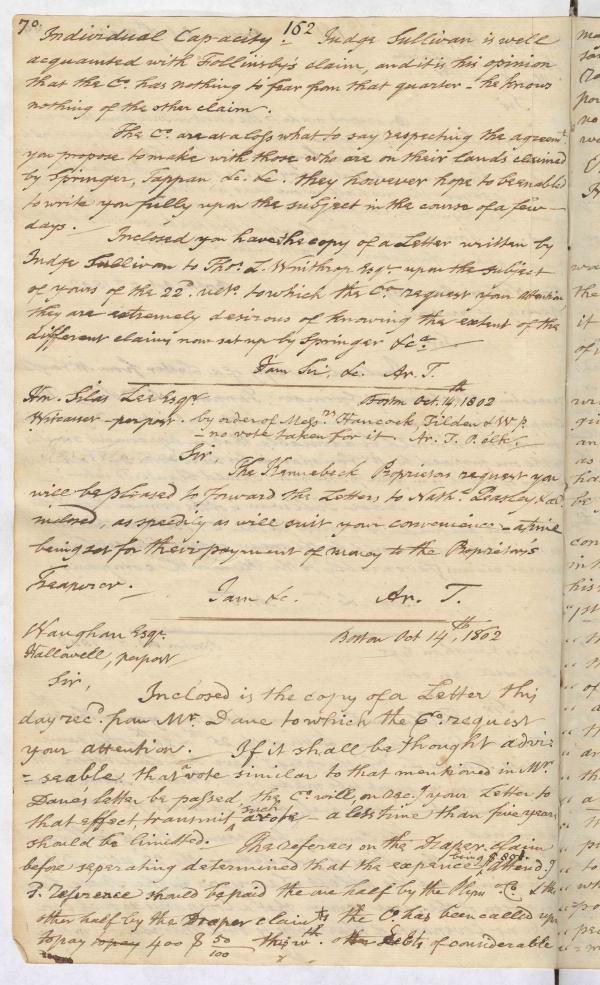 70.
162
Individual Capacity. Judge Sullivan is well
acquainted with Follinsby's claim, and it is his opinion
that the Co. has nothing to fear from that quarter - he knows
nothing of the other claim.
The Co. are at a loss what to say respecting the agreemt.
you propose to make with those who are on their lands claimed
by Springer, Tappan &c. &c. they however hope to be enabled
to write you fully upon the subject in the course of a few
days.
Inclosed you have the copy of a Letter written by
Judge Sullivan to Thos. L. Winthrop Esqr. upon the subject
of yours of the 22d. ulto. to which the Co. request your attention,
they are extremely desirous of knowing the extent of the
different claims now set up by Springer &ca
I am Sir, &c. Ar. T.
Hon. Silas Lee Esqr. Boston Oct. 14th, 1802
Wiscasset - per post. by order of Messrs. Hancock, Tilden & W.
- no vote taken for it Ar. T.
Sir.
The Kennebeck Proprietors request you
will be pleased to forward the Letters to Nathl.
inclosed, as speedily as will suit your convenience - a time
being set for their payment of money to the Proprietor's
Treasurer. I am &c. Ar. T.
Vaughan Esqr. Boston Oct 14th, 1802
Hallowell, per post
Sir,
Inclosed is the copy of a Letter this
day recd. from Mr. Dane to which the Co. request
your attention. If it shall be thought advi-
-seable that a vote similar to that mentioned in Mr.
Dane's letter be passed the Co. will, on rec. of your Letter to
that effect, transmit such a vote - a less time than five years
should be limitted. The referees on the Draper Claim
before seperating determined that the expences being $801. attend.g
P. reference should be paid the one half by the Plym Co. & the
other half by the Draper claimts the Co. has been called upon
to pay to pay 400 $ 50/100 this wth. other Debts of considerable